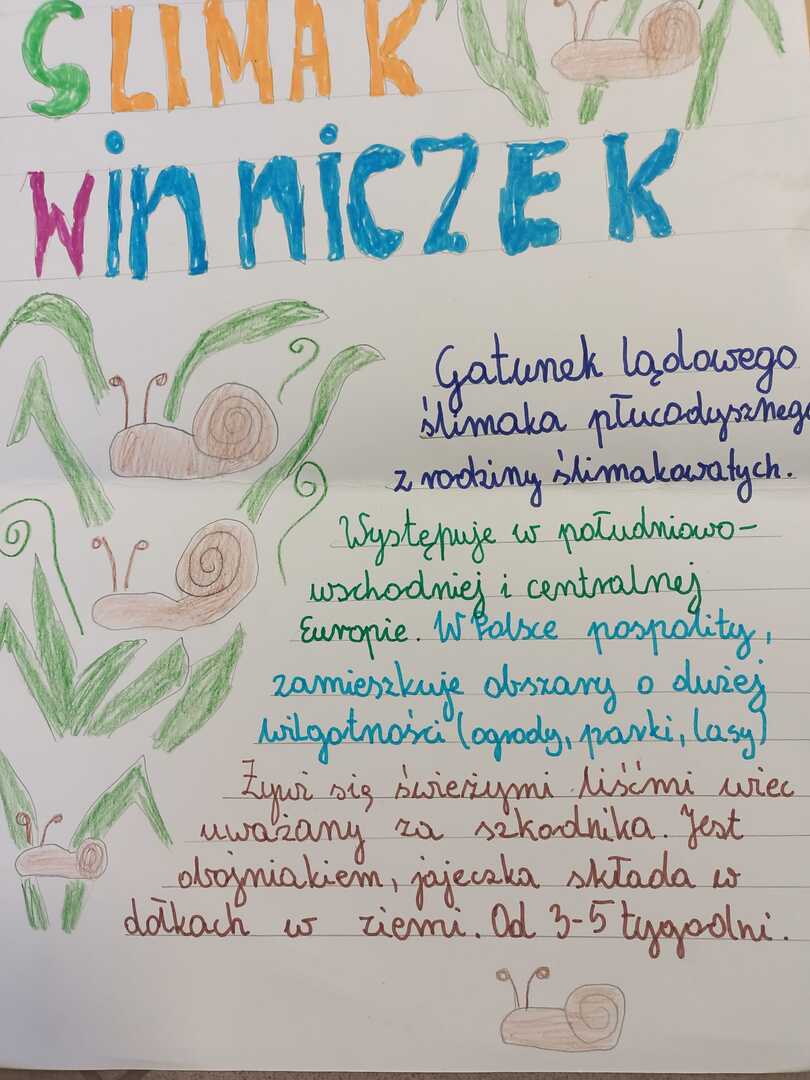 ŚLIMAK
WinniCZEK
Gatunek lądowego
ślimaka płucodysznego
z rodziny ślimakowatych.
Występuje w południowo-
wschodniej i centralnej
Europie. W Polsce pospolity,
zamieszkuje obszary o dużej
wilgotności (ogrody, parki, lasy)
Żywi się świeżymi liśćmi wiec
uważany za szkodnika. Jest
obojniakiem, jajeczka składa w
dołkach w ziemi. Od 3-5 tygodni.